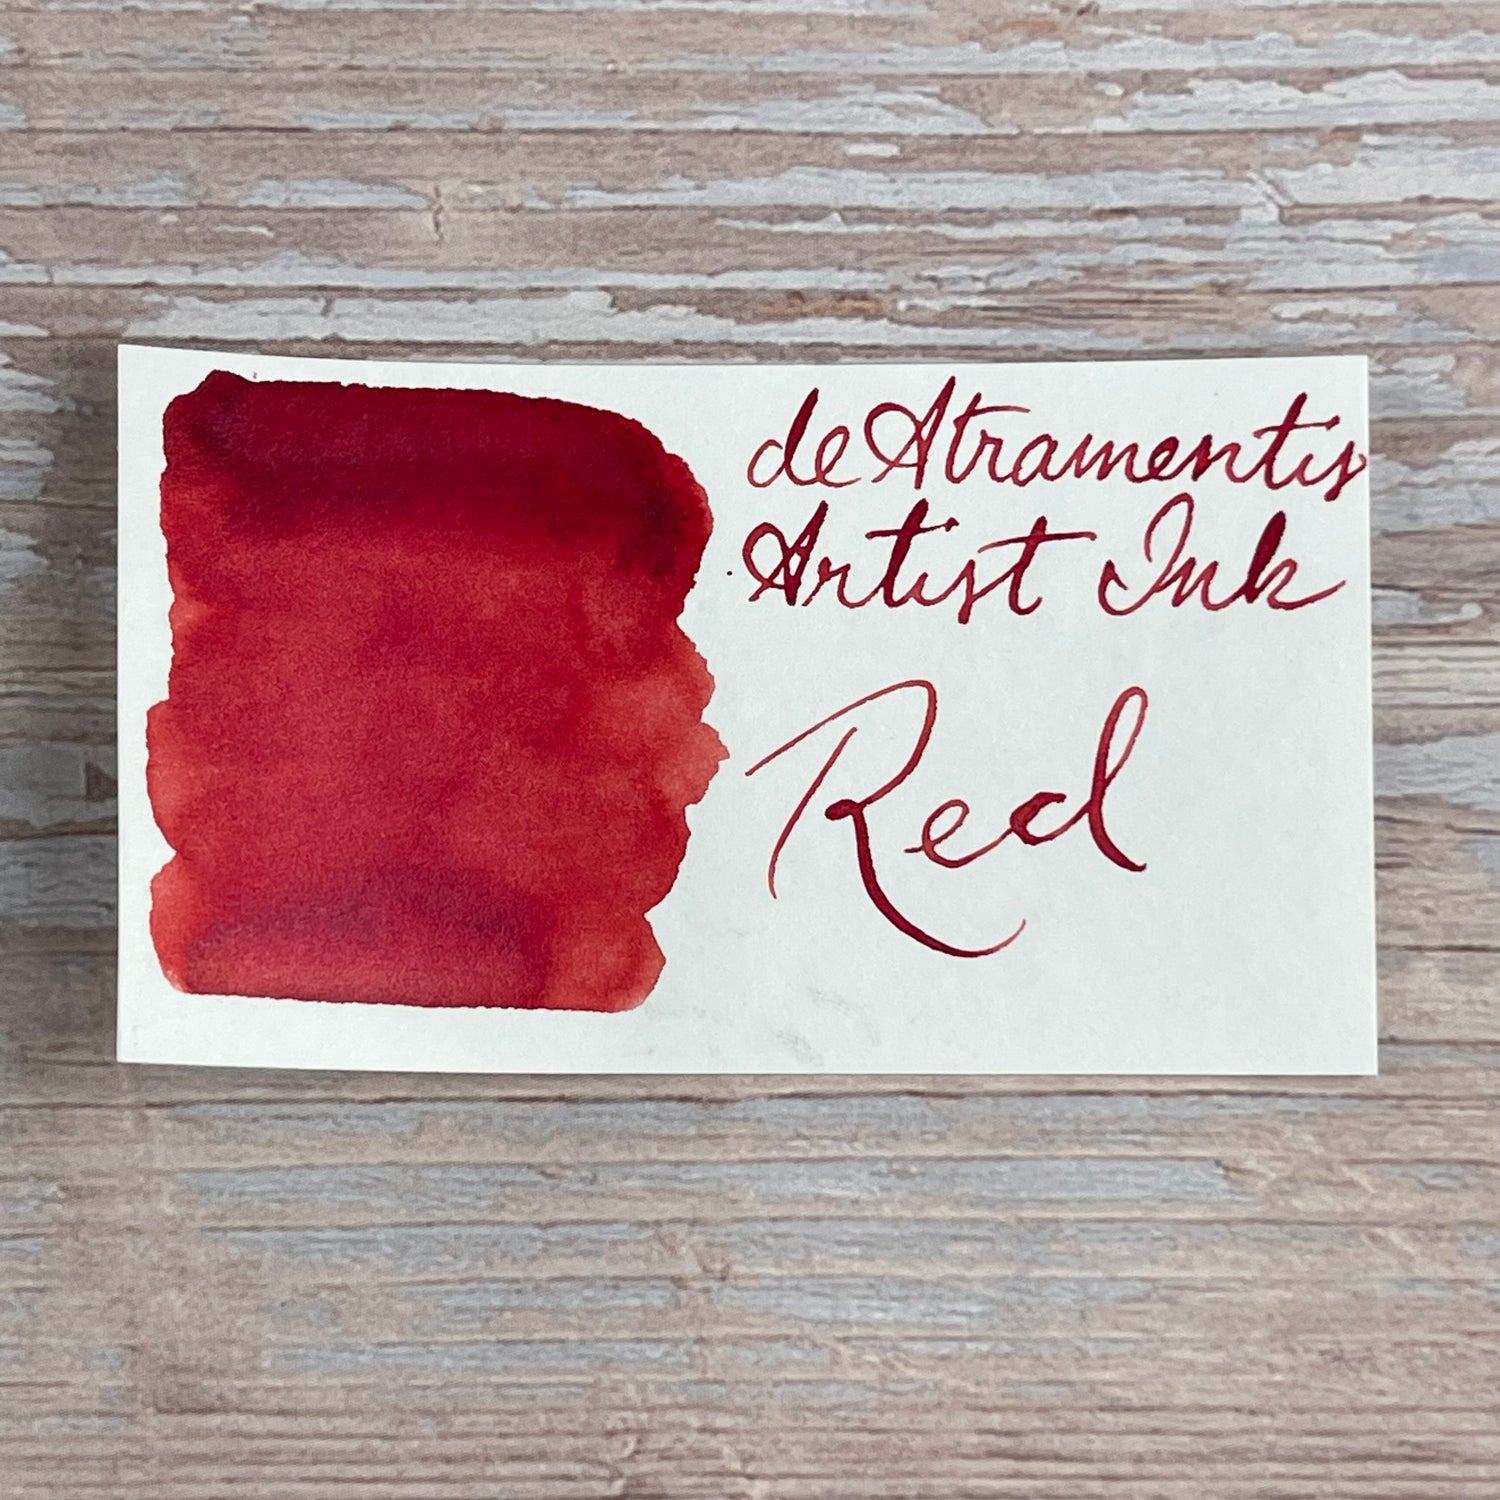 de Atramentis
Artist Ink
Red